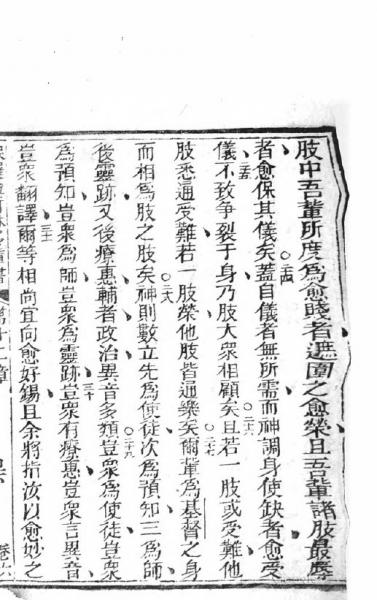 肢中吾輩所度為愈賤者遮圍之愈榮且吾輩諸肢最辱
者愈保其儀矣蓋自儀者無所需而神調身使缺者愈受
二四
儀不致争裂于身乃肢大衆相顧矣且若一肢或受難他
二五
二六
肢悉通受難若一肢榮他肢皆通樂矣爾輩為基督之身
二七
而相為肢之肢矣神則數立先為使徒次為預知三為師
二八
後靈跡又後療惠輔者政治異音多類豈衆為使徒豈衆
二九
為預知豈衆為師豈衆為靈跡豈衆有療惠豈衆言異音
三十
豈衆翻譯爾等相尚宜向愈好錫且余將指汝以愈妙之
三一
書
第十二章